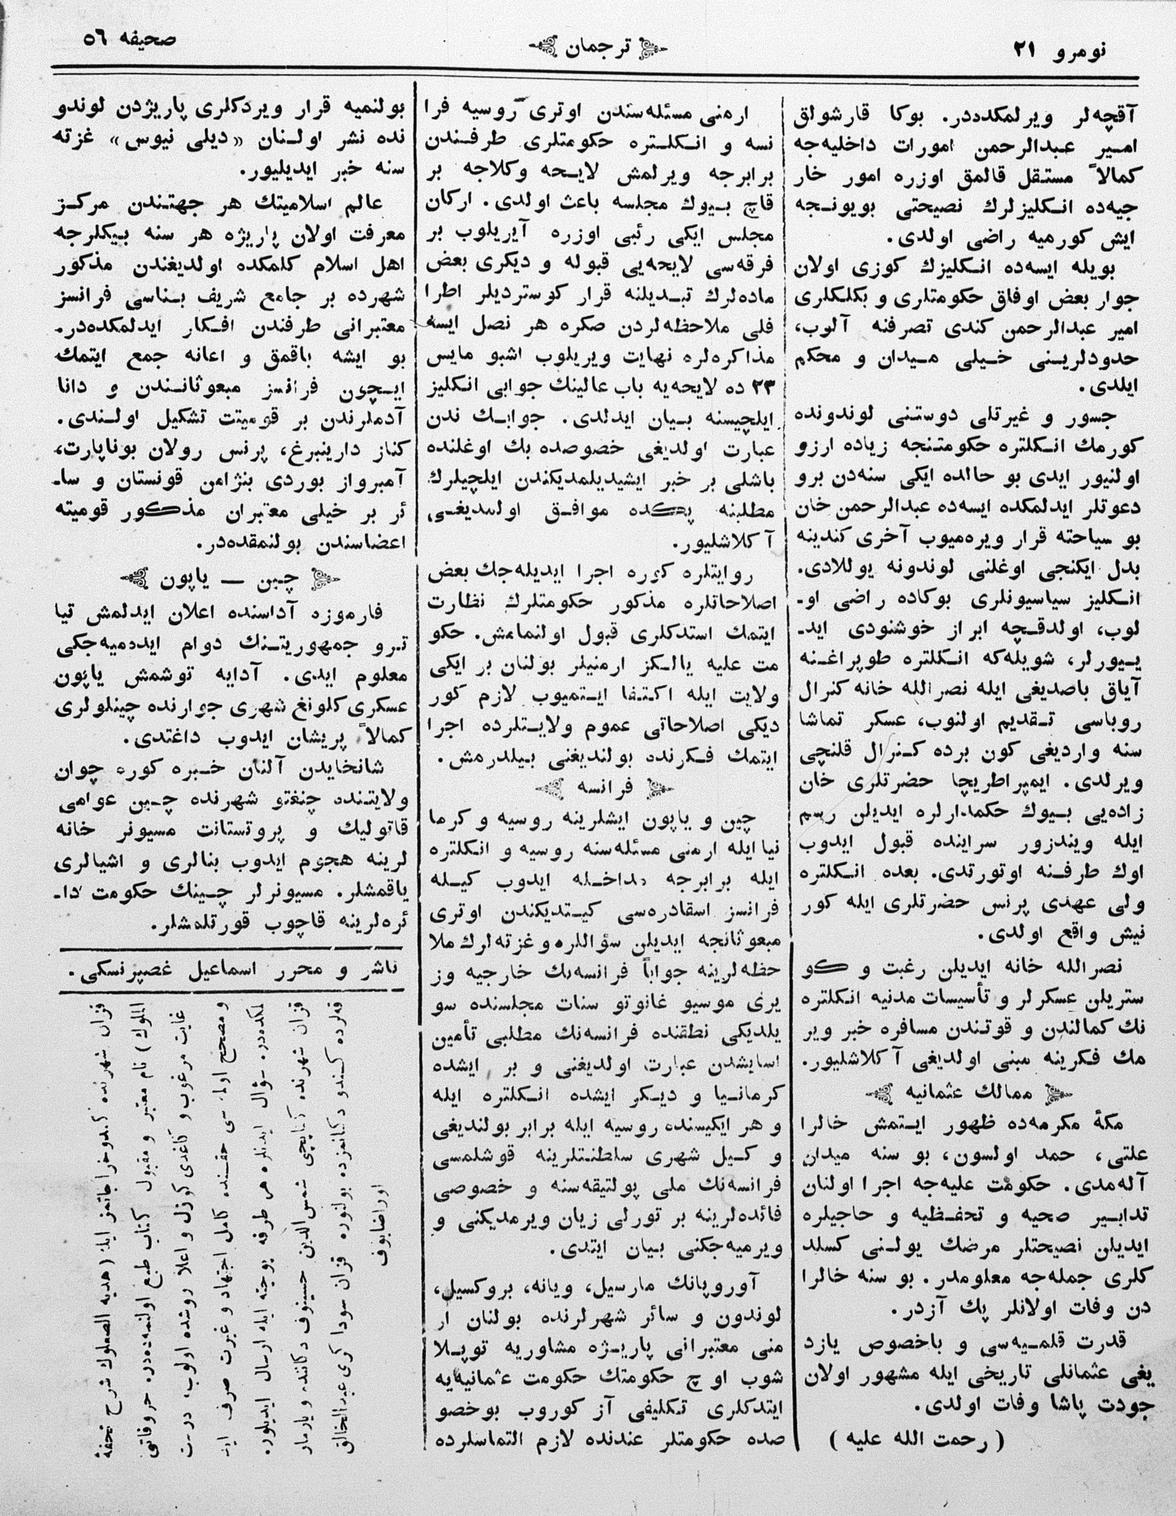 نومرو ٢١
ترجمان
صحيفه ٥٦
آقچه‌لر ويرلمكده‌در. بوكا قارشولق
امير عبدالرحمن امورات داخليه‌جه
كمالاً مستقل قالمق اوزره امور خار
جيه‌ده انكليزلرك نصيحتى بويونجه
ايش كورميه راضى اولدى.
بويله ايسه‌ده انكليزك كوزى اولان
جوار بعض اوفاق حكومتلرى و بكلكلرى
امير عبدالرحمن كندى تصرفنه آلوب،
حدودلرينى خيلى ميدان و محكم
ايلدى.
جسور و غيرتلى دوستنى لوندونده
كورمك انكلتره حكومتنجه زياده ارزو
اولنيور ايدى بو حالده ايكى سنه‌دن برو
دعوتلر ايدلمكده ايسه‌ده عبدالرحمن خان
بو سياحته قرار ويره‌ميوب آخرى كندينه
بدل ايكنجى اوغلنى لوندونه يوللادى.
انكليز سياسيونلرى بوكاده راضى او-
لوب، اولدقچه ابراز خوشنودى ايد-
ييورلر، شويله‌كه انكلتره طوپراغنه
آياق باصديغى ايله نصرالله خانه كنرال
روباسى تقديم اولنوب، عسكر تماشا
سنه وارديغى كون برده كنرال قلنچى
ويرلدى. ايمپراطريچا حضرتلرى خان
زاده‌يى بيوك حكمدارلره ايديلن رسم
ايله ويندزور سراينده قبول ايدوب
اوك طرفنه اوتورتدى. بعده انكلتره
ولى عهدى پرنس حضرتلرى ايله كور
نيش واقع اولدى.
نصرالله خانه ايديلن رغبت و كو
ستريلن عسكرلر و تأسيسات مدنيه انكلتره
نك كمالندن و قوتندن مسافره خبر وير
مك فكرينه مبنى اولديغى آكلاشليور.
ممالك عثمانيه
مكهٔ مكرمه‌ده ظهور ايتمش خالرا
علتى، حمد اولسون، بو سنه ميدان
آله‌مدى. حكومت عليه‌جه اجرا اولنان
تدابير صحيه و تحفظيه و حاجيلره
ايديلن نصيحتلر مرضك يولنى كسلد
كلرى جمله‌جه معلومدر. بو سنه خالرا
دن وفات اولانلر پك آزدر.
قدرت قلميه‌سى و باخصوص يازد
يغى عثمانلى تاريخى ايله مشهور اولان
جودت پاشا وفات اولدى.
( رحمت الله عليه )
ارمنى مسئله‌سندن اوترى روسيه فرا
نسه و انكلتره حكومتلرى طرفندن
برابرجه ويرلمش لايحه وكلاجه بر
قاچ بيوك مجلسه باعث اولدى. اركان
مجلس ايكى رئيى اوزره آيريلوب بر
فرقه‌سى لايحه‌يى قبوله و ديكرى بعض
ماده‌لرك تبديلنه قرار كوسترديلر اطرا
فلى ملاحظه‌لردن صكره هر نصل ايسه
مذاكره‌لره نهايت ويريلوب اشبو مايس
٢٣ ده لايحه‌يه باب عالينك جوابى انكليز
ايلچيسنه بيان ايدلدى. جوابك ندن
عبارت اولديغى خصوصده بك اوغلنده
باشلى بر خبر ايشيديلمديكندن ايلچيلرك
مطلبنه پكده موافق اولمديغى
آكلاشليور.
روايتلره كوره اجرا ايديله‌جك بعض
اصلاحاتلره مذكور حكومتلرك نظارت
ايتمك استدكلرى قبول اولنمامش. حكو
مت عليه يالكز ارمنيلر بولنان بر ايكى
ولايت ايله اكتفا ايتميوب لازم كور
ديكى اصلاحاتى عموم ولايتلرده اجرا
ايتمك فكرنده بولنديغنى بيلدرمش.
فرانسه
چين و ياپون ايشلرينه روسيه و كرما
نيا ايله ارمنى مسئله‌سنه روسيه و انكلتره
ايله برابرجه مداخله ايدوب كيله
فرانسز اسقادره‌سى كيتديكندن اوترى
مبعوثانجه ايديلن سؤاللره و غزته‌لرك ملا
حظه‌لرينه جواباً فرانسه‌نك خارجيه وز
يرى موسيو غانوتو سنات مجلسنده سو
يلديكى نطقنده فرانسه‌نك مطلبى تأمين
اسايشدن عبارت اولديغنى و بر ايشده
كرمانيا و ديكر ايشده انكلتره ايله
و هر ايكيسنده روسيه ايله برابر بولنديغى
و كيل شهرى سلطنتلرينه قوشلمسى
فرانسه‌نك ملى پولتيقه‌سنه و خصوصى
فائده‌لرينه بر تورلى زيان ويرمديكنى و
ويرميه‌جكنى بيان ايتدى.
آوروپانك مارسيل، ويانه، بروكسيل،
لوندون و سائر شهرلرنده بولنان ار
منى معتبرانى پاريژه مشاوريه توپلا
شوب اوچ حكومتك حكومت عثمانيه‌يه
ايتدكلرى تكليفى آز كوروب بوخصو
صده حكومتلر عندنده لازم التماسلرده
بولنميه قرار ويردكلرى پاريژدن لوندو
نده نشر اولنان «ديلى نيوس» غزته
سنه خبر ايديليور.
عالم اسلاميتك هر جهتندن مركز
معرفت اولان پاريژه هر سنه بيكلرجه
اهل اسلام كلمكده اولديغندن مذكور
شهرده بر جامع شريف بناسى فرانسز
معتبرانى طرفندن افكار ايدلمكده‌در.
بو ايشه باقمق و اعانه جمع ايتمك
ايچون فرانسز مبعوثانندن و دانا
آدملرندن بر قوميتت تشكيل اولندى.
كناز دارينبرغ، پرنس رولان بوناپارت،
آمبرواز بوردى بنژامن قونستان و سا-
ئر بر خيلى معتبران مذكور قوميته
اعضاسندن بولنمقده‌در.
چين — ياپون
فارموزه آداسنده اعلان ايدلمش تيا
ترو جمهوريتنك دوام ايده‌ميه‌جكى
معلوم ايدى. آدايه توشمش ياپون
عسكرى كلونغ شهرى جوارنده چينلولرى
كمالاً پريشان ايدوب داغتدى.
شانخايدن آلنان خبره كوره چوان
ولايتنده چنغتو شهرنده چين عوامى
قاتوليك و پروتستانت مسيونر خانه
لرينه هجوم ايدوب بنالرى و اشيالرى
ياقمشلر. مسيونرلر چينك حكومت دا-
ئره‌لرينه قاچوب قورتلمشلر.
ناشر و محرر اسماعيل غصپرنسكى.
قزان شهرنده كندو خراجاتمز ايله (هديه الصعلوك شرح تحفة
الملوك) نام معتبر و مقبول كتاب طبع اولنمه‌ده‌در. حروفاتى
غايت مرغوب و كاغدى كوزل و اعلا روشده اولوب، درست
و مصحح اولمسى حقنده كامل اجتهاد و غيرت صرف ايد
لمكده‌در. سؤال ايدنلره هر طرفه پوچته ايله ارسال ايديلور.
قزان شهرنده كتابچى شمس الدين حسينوف دكاننده و يارمار
قه‌لرده كندو دكانمزده بولنور. قزان سوداكرى عبدالخالق
اوراضايوف